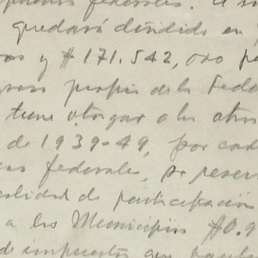 federales. A
quedará dividido en
y $ 171.542,000 pe
propios de la Fede
tiene otorgar a los otros
de 1939-49, por cad
federales, se reser
alidad de participación
a los Municipios $0.9
de impuestos que